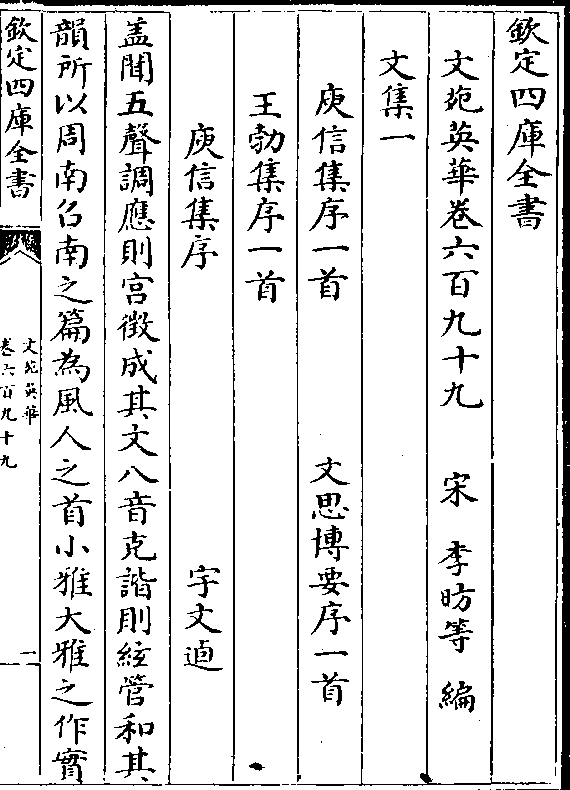 欽定四庫全書
文苑英華卷六百九十九 宋 李昉等 編
文集一
庾信集序一首 文思博要序一首
王勃集序一首
庾信集序 宇文逌
盖聞五聲調應則宫徴成其文八音克諧則絃管和其
韻所以周南召南之篇為風人之首小雅大雅之作實
欽定四庫全書
文苑英華
卷六百九十九
一